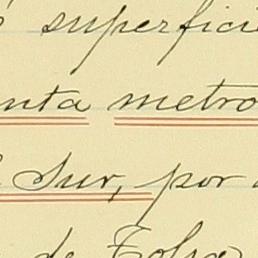 superfici
nta metro
Sur, por
de Tolsa